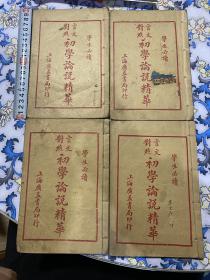 學生必讀
言文對照 初學論說精華
上海廣益書局印行
學生必讀
言文對照 初學論說精華
上海廣益書局印行
學生必讀
言文對照 初學論說精華
上海廣益書局印行
學生必讀
言文對照 初學論說精華
上海廣益書局印行